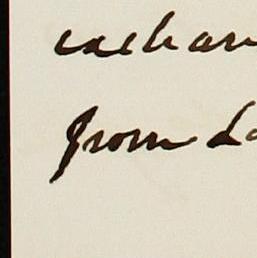 exchan
from La